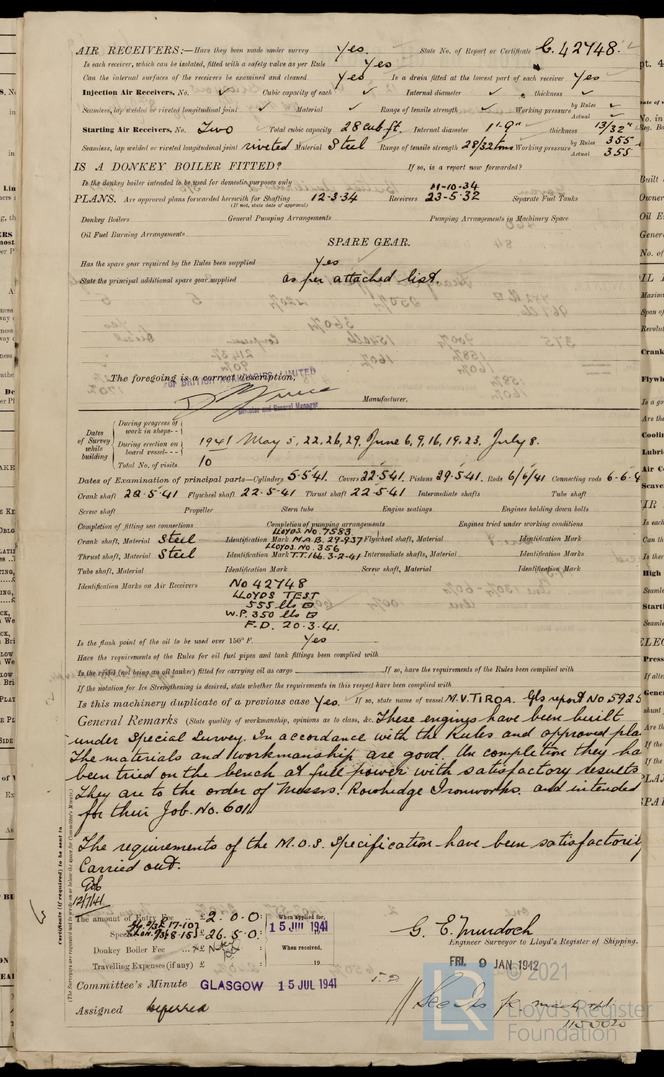 AIR RECEIVERS:—Have they been made under survey Yes. State No. of Report or Certificate C. 42748.
Is each receiver, which can be isolated, fitted with a safety valve as per Rule Yes
Can the internal surfaces of the receivers be examined and cleaned Yes Is a drain fitted at the lowest part of each receiver Yes
Injection Air Receivers, No. ✓ Cubic capacity of each ✓ Internal diameter ✓ thickness ✓
Seamless, lap welded or riveted longitudinal joint ✓ Material ✓ Range of tensile strength ✓ Working pressure by Rules ✓ Actual ✓
Starting Air Receivers, No. Two Total cubic capacity 28 cub. ft. Internal diameter 1'-9" thickness 13/32"
Seamless, lap welded or riveted longitudinal joint riveted Material Steel Range of tensile strength 28/32 tons Working pressure by Rules 355 Actual 355
IS A DONKEY BOILER FITTED? If so, is a report now forwarded?
Is the donkey boiler intended to be used for domestic purposes only
11-10-34
PLANS. Are approved plans forwarded herewith for Shafting 12-3-34 Receivers 23-5-32 Separate Fuel Tanks
(If not, state date of approval)
Donkey Boilers General Pumping Arrangements Pumping Arrangements in Machinery Space
Oil Fuel Burning Arrangements
SPARE GEAR.
Has the spare gear required by the Rules been supplied Yes
State the principal additional spare gear supplied as per attached list.
The foregoing is a correct description,
Manufacturer.
Director and General Manager
Dates of Survey while building
During progress of work in shops - -
During erection on board vessel - - - 1941 May 5, 22, 26, 29, June 6, 9, 16, 19, 23, July 8.
Total No. of visits 10
Dates of Examination of principal parts—Cylinders 5-5-41. Covers 22-5-41. Pistons 29-5-41. Rods 6/6/41 Connecting rods 6-6-4
Crank shaft 22-5-41 Flywheel shaft 22-5-41 Thrust shaft 22-5-41 Intermediate shafts Tube shaft
Screw shaft Propeller Stern tube Engine seatings Engines holding down bolts
Completion of fitting sea connections Completion of pumping arrangements Engines tried under working conditions
LLOYDS No. 7583
Crank shaft, Material Steel Identification Mark M.A.B. 29-9-37 Flywheel shaft, Material Identification Mark
LLOYDS No. 356
Thrust shaft, Material Steel Identification Mark T.T. 166. 3-2-41 Intermediate shafts, Material Identification Marks
Tube shaft, Material Identification Mark Screw shaft, Material Identification Mark
Identification Marks on Air Receivers No 42748
LLOYDS TEST
555 lbs
W.P. 350 lbs
F.D. 20-3-41.
Is the flash point of the oil to be used over 150° F. Yes
Have the requirements of the Rules for oil fuel pipes and tank fittings been complied with
Is the vessel (not being an oil tanker) fitted for carrying oil as cargo If so, have the requirements of the Rules been complied with
If the notation for Ice Strengthening is desired, state whether the requirements in this respect have been complied with
Is this machinery duplicate of a previous case Yes. If so, state name of vessel M.V. TIROA. Gls report No 5925
General Remarks (State quality of workmanship, opinions as to class, &c. These engines have been built
under Special Survey. In accordance with the Rules and approved pla
The materials and workmanship are good. On completion they ha
been tried on the bench at full power with satisfactory results
They are to the order of Messrs. Rowhedge Ironworks. and intended
for their Job. No. 601.
The requirements of the M.O.S. Specification have been satisfactorily
Carried out.
12/7/41
The amount of Entry Fee .. £ 2 : 0 : 0 : When applied for,
£ 26 . 5 . 0 : 15 JUL 1941
Donkey Boiler Fee ... £ When received,
Travelling Expenses (if any) £ 19
G. E. Murdoch
Engineer Surveyor to Lloyd's Register of Shipping.
FRI. 9 JAN 1942
Committee's Minute GLASGOW 15 JUL 1941
Assigned Deferred
Certificate (if required) to be sent to
(The Surveyors are requested not to write on or below the space for Committee's Minute.)
© 2021
Lloyd's Register
Foundation